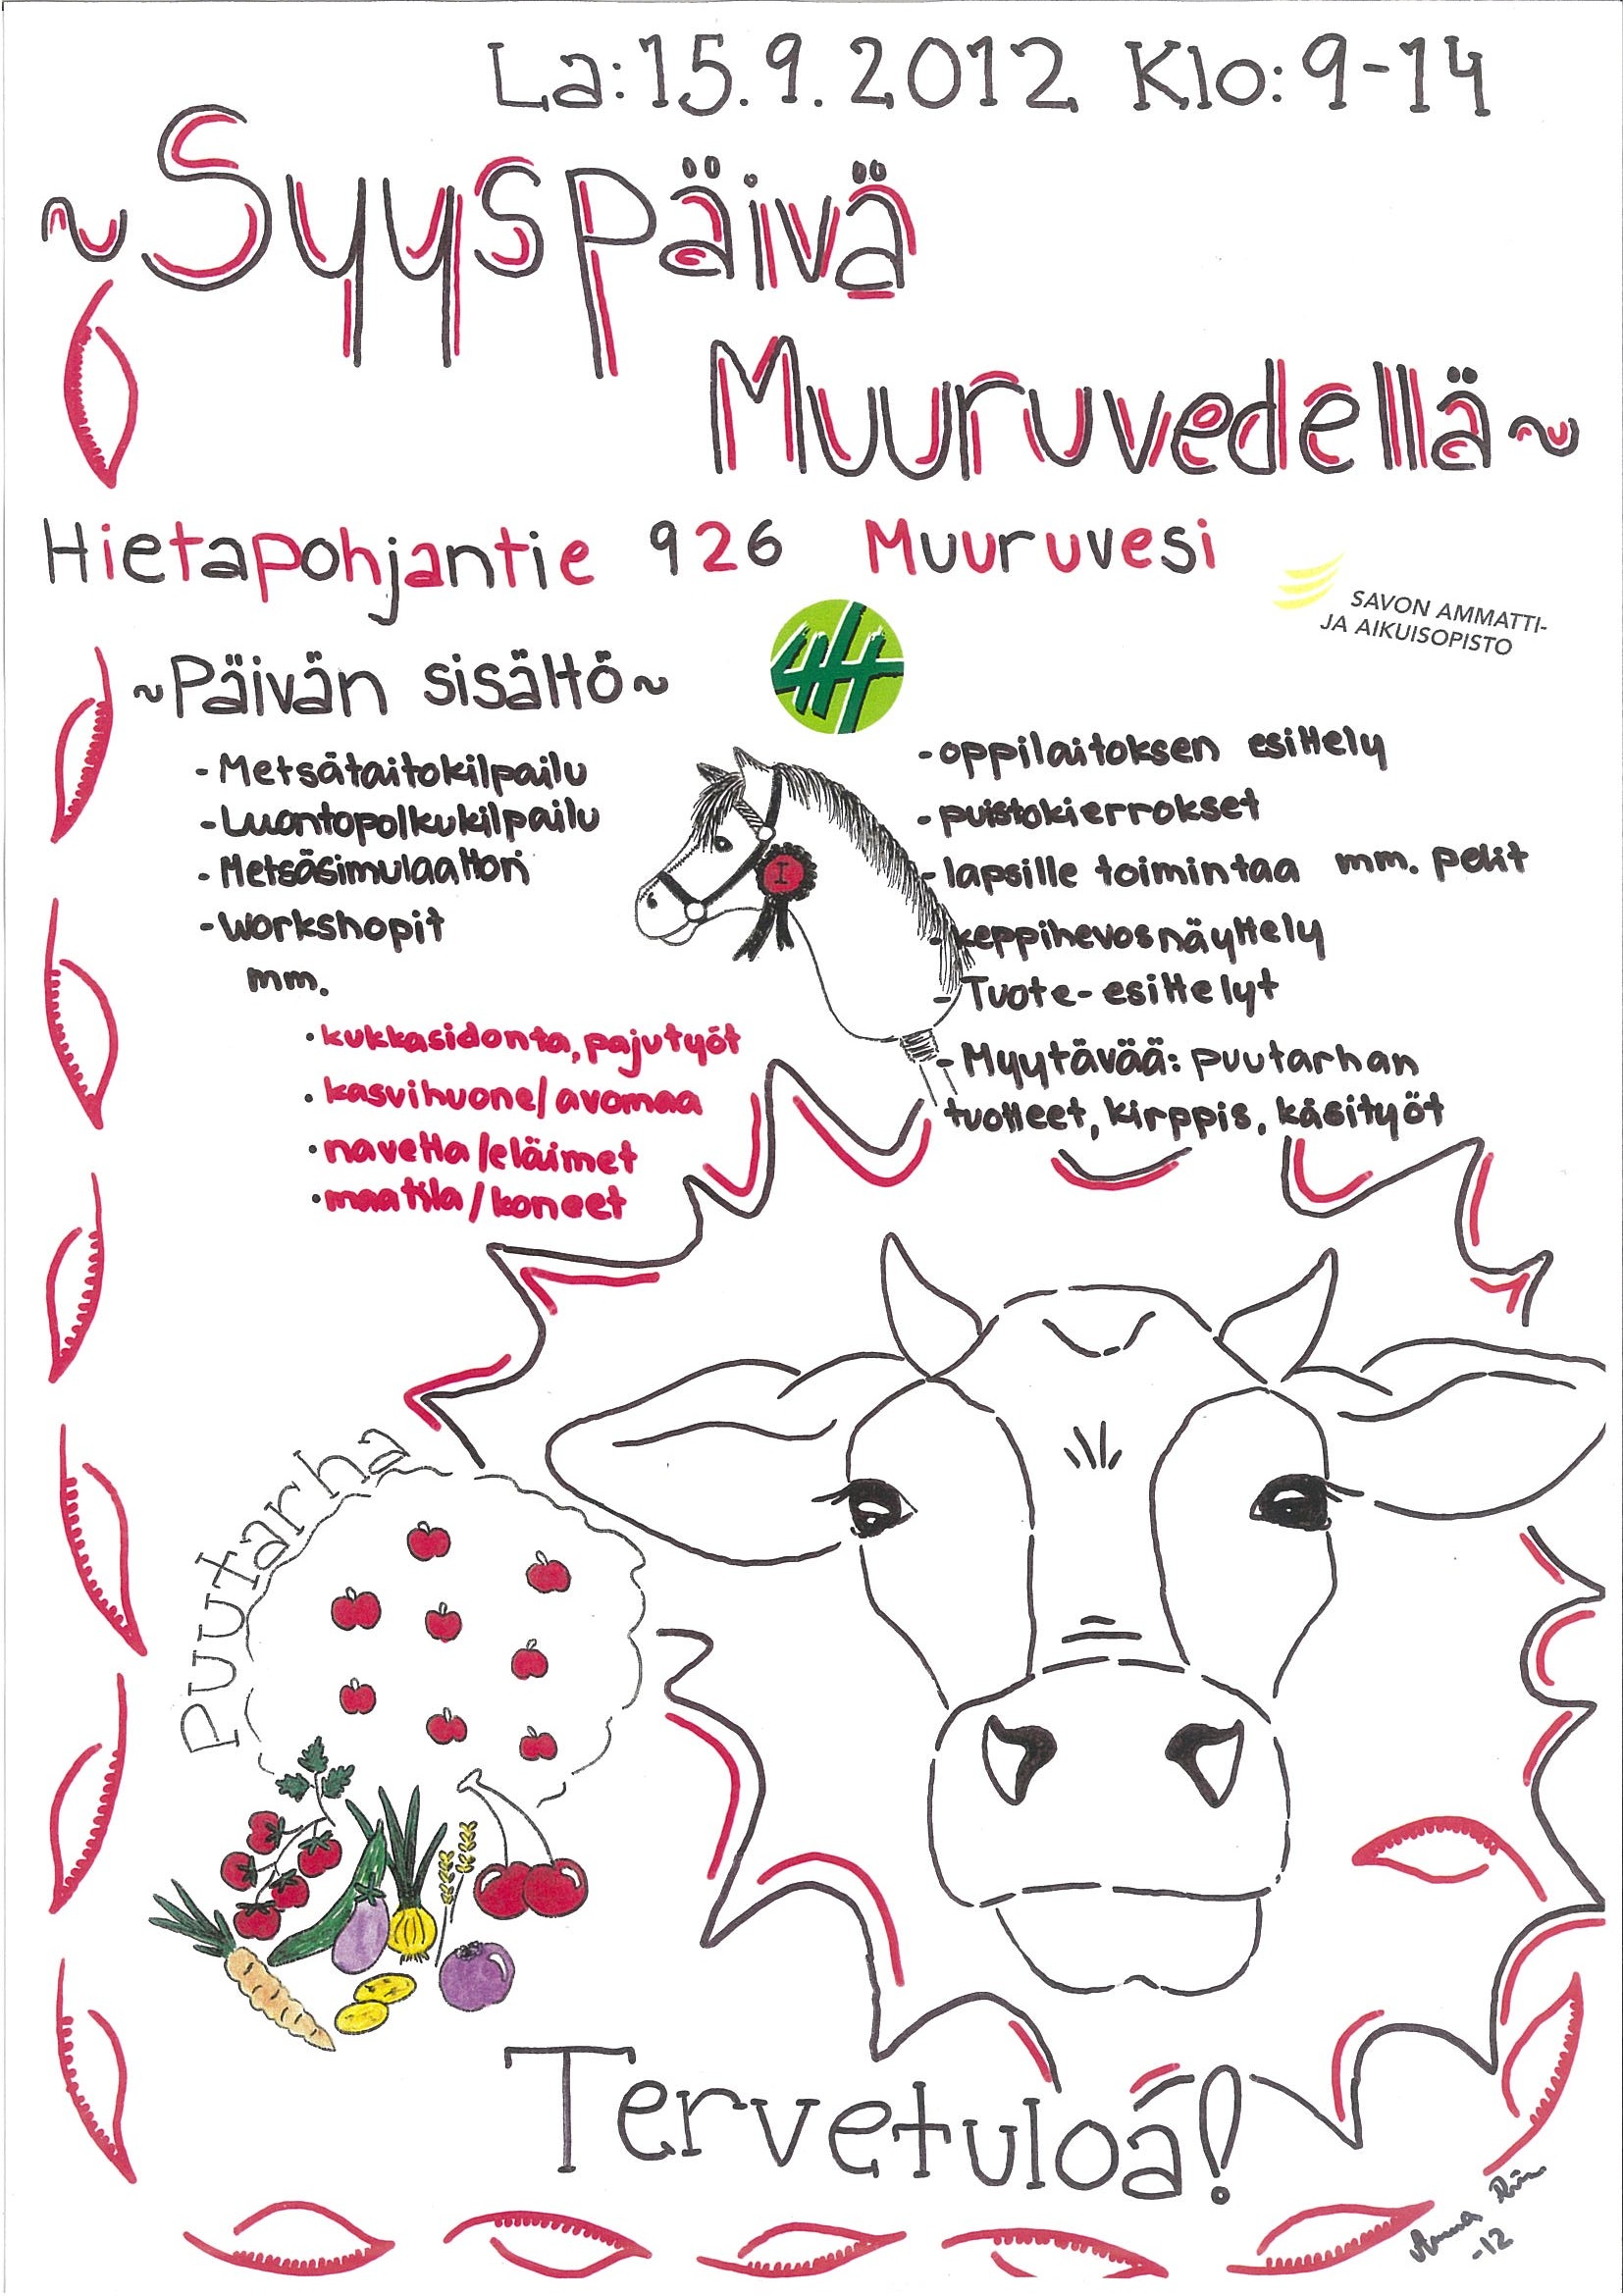 La: 15.9.2012 Klo: 9-14
~Syyspäivä
Muuruvedellä~
Hietapohjantie 926 Muuruvesi
SAVON AMMATTI-
JA AIKUISOPISTO
4H
~Päivän sisältö~
-Metsätaitokilpailu
-Luontopolkukilpailu
-Metsäsimulaattori
-Workshopit
mm.
•kukkasidonta, pajutyöt
•kasvihuone/avomaa
•navetta/eläimet
•maatila/koneet
I
-oppilaitoksen esittely
-puistokierrokset
-lapsille toimintaa mm. pelit
-keppihevosnäyttely
-Tuote-esittelyt
-Myytävää: puutarhan
tuotteet, kirppis, käsityöt
Puutarha
Tervetuloa!
Anna
-12